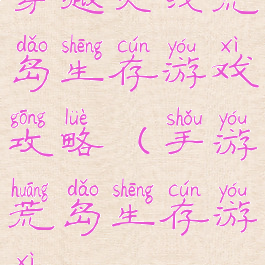 穿越火线荒
dǎo shēng cún yóu xì
岛生存游戏
gōng lüè shǒu yóu
攻略（手游
huāng dǎo shēng cún yóu
荒岛生存游
xì